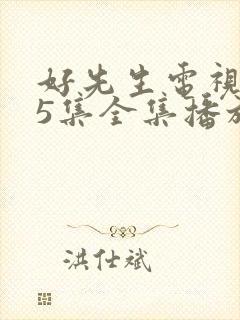 好先生電視
5集全集播放
洪仕斌